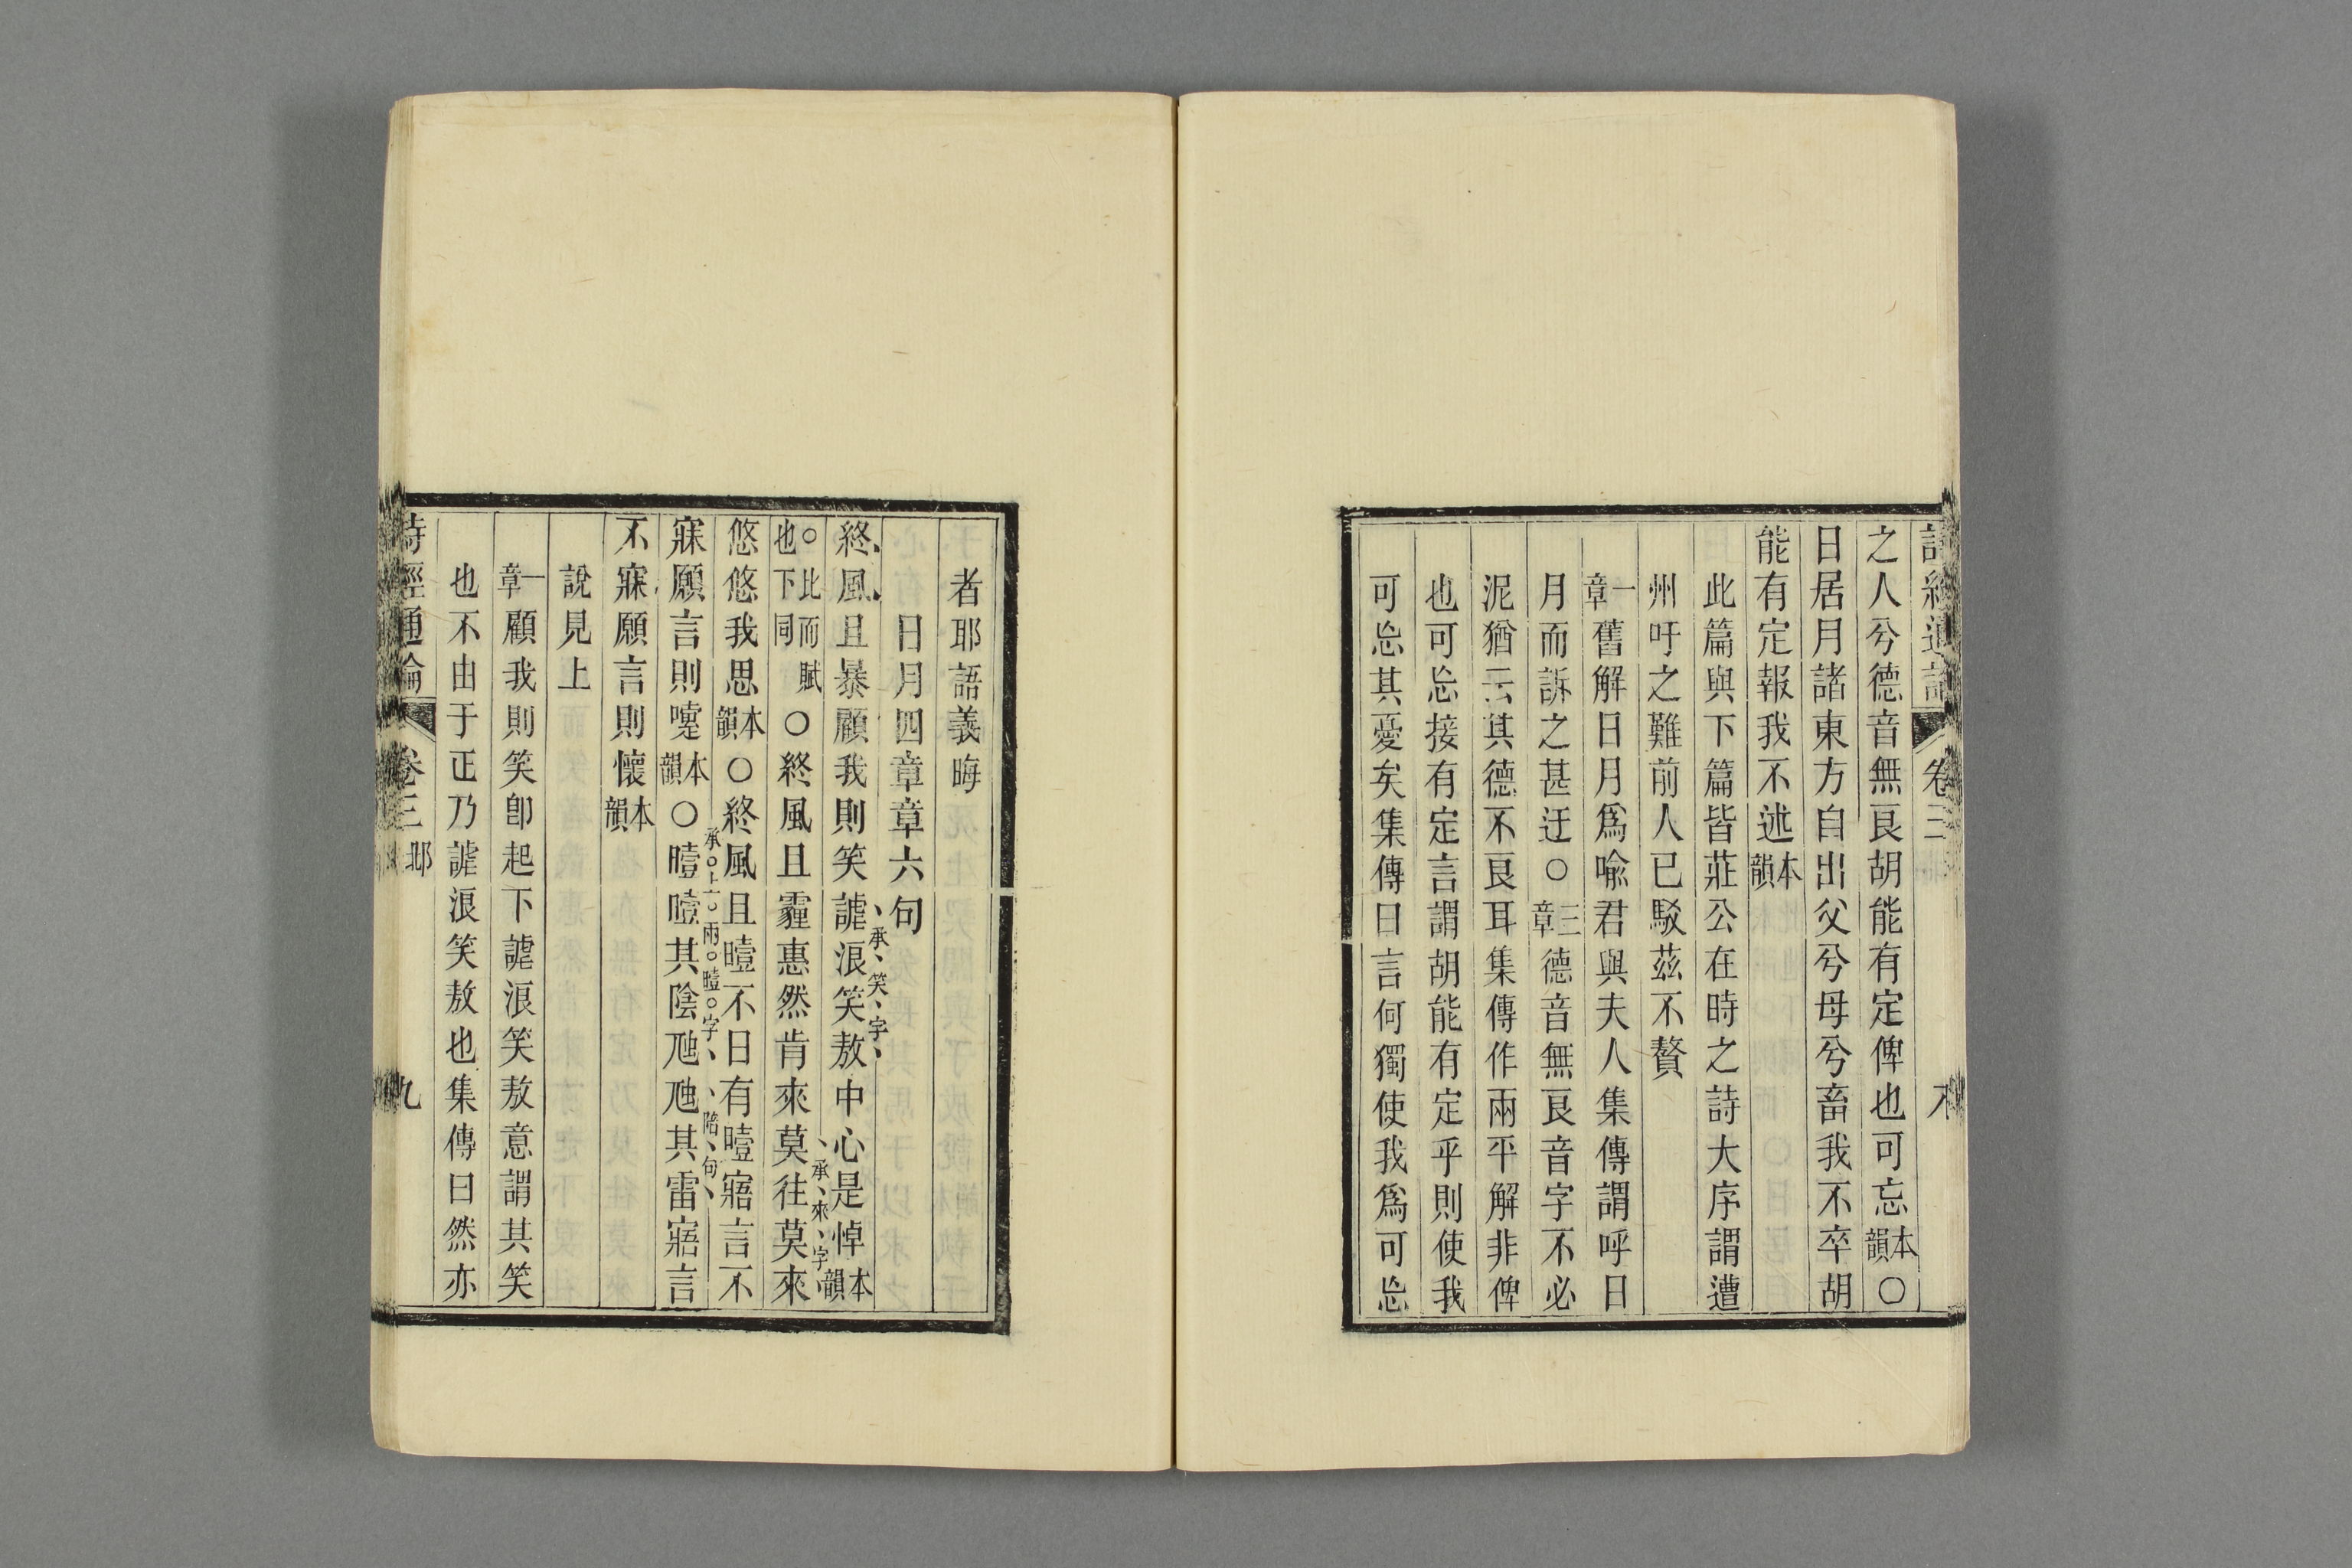 詩經通論 卷三 八
之人兮德音無良胡能有定俾也可忘本韻〇
日居月諸東方自出父兮母兮畜我不卒胡
能有定報我不述本韻
此篇與下篇皆莊公在時之詩大序謂遭
州吁之難前人已駁茲不贅
一章舊解日月爲喩君與夫人集傳謂呼日
月而訴之甚迂〇三章德音無良音字不必
泥猶云其德不良耳集傳作兩平解非俾
也可忘接有定言謂胡能有定乎則使我
可忘其憂矣集傳曰言何獨使我爲可忘
者耶語義晦
日月四章章六句
終風且暴顧我則笑謔浪笑敖中心是悼本韻
承笑字
〇比而賦也下同〇終風且霾惠然肯來莫往莫來
承來字
悠悠我思本韻〇終風且曀不日有曀寤言不
承上兩曀字
陪句
寐願言則嚏本韻〇曀曀其陰虺虺其雷寤言
不寐願言則懷本韻
說見上
一章顧我則笑卽起下謔浪笑敖意謂其笑
也不由于正乃謔浪笑敖也集傳曰然亦
詩經通論 卷三 邶 九